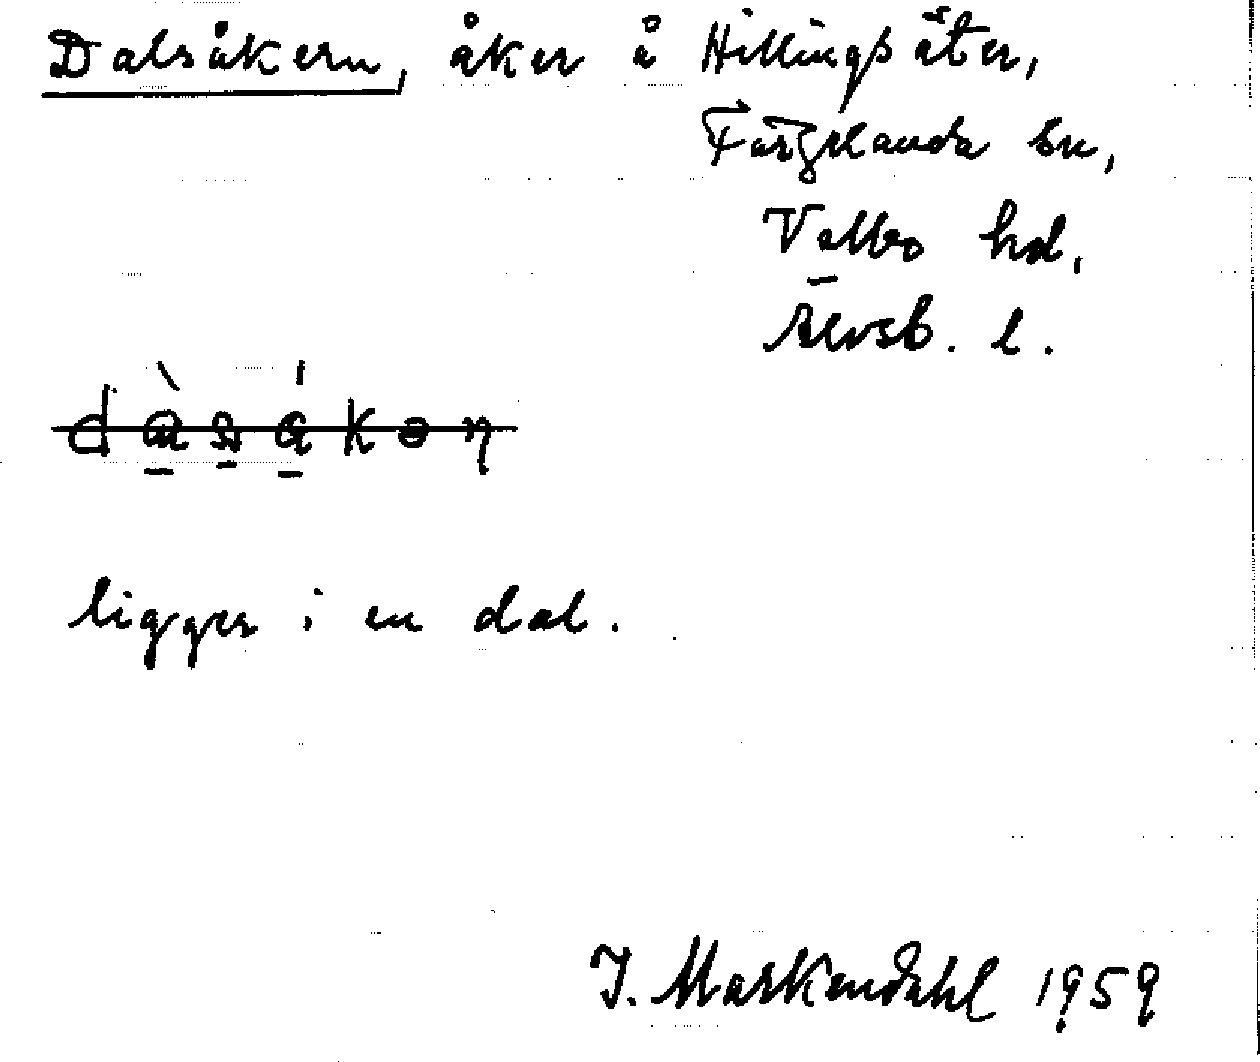 Dalsåkern, åker å Hillingsäter,
Färgelanda sn,
Valbo hd,
Älvsb. l.
ligger i en dal.
I. Markendahl 1959